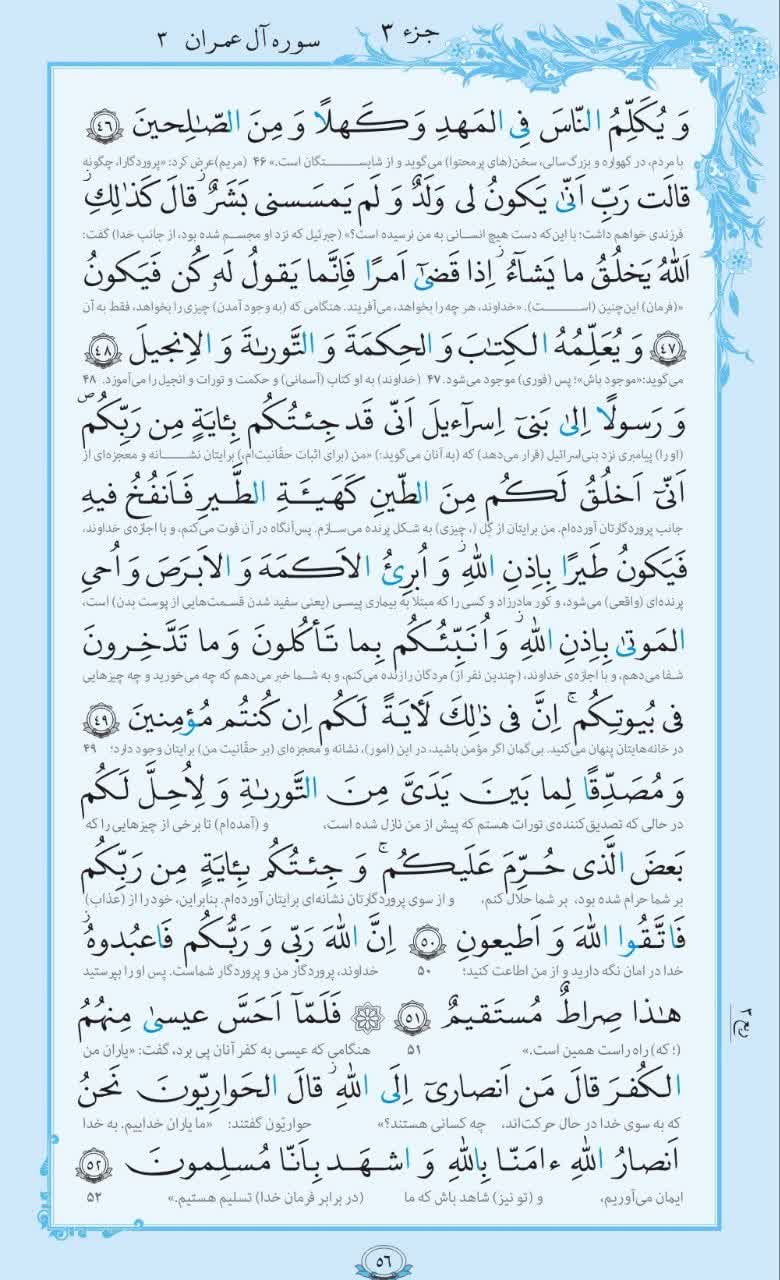 جزء ۳
سوره آل عمران ۳
وَ يُكَلِّمُ النّاسَ فِي المَهدِ وَ كَهلًا وَ مِنَ الصّٰلِحينَ ﴿٤٦﴾
با مردم، در گهواره و بزرگ‌سالی، سخن(های پرمحتوا) می‌گوید و از شایستگان است.» ۴۶ (مریم)عرض کرد: «پروردگارا، چگونه
قالَت رَبِّ اَنّىٰ يَكونُ لى وَلَدٌ وَ لَم يَمسَسنى بَشَرٌ ۖ قالَ كَذٰلِكِ
فرزندی خواهم داشت؛ با این‌که دست هیچ انسانی به من نرسیده است؟» (جبرئیل که نزد او مجسم شده بود، از جانب خدا) گفت:
اللهُ يَخلُقُ ما يَشاءُ ۚ اِذا قَضىٰٓ اَمرًا فَاِنَّما يَقولُ لَهٗ كُن فَيَكونُ
«(فرمان) این‌چنین (است). «خداوند، هر چه را بخواهد، می‌آفریند. هنگامی که (به وجود آمدن) چیزی را بخواهد، فقط به آن
﴿٤٧﴾ وَ يُعَلِّمُهُ الكِتٰبَ وَ الحِكمَةَ وَ التَّورىٰةَ وَ الاِنجيلَ ﴿٤٨﴾
می‌گوید: «موجود باش»؛ پس (فوری) موجود می‌شود. ۴۷ (خداوند) به او کتاب (آسمانی) و حکمت و تورات و انجیل را می‌آموزد. ۴۸
وَ رَسولًا اِلىٰ بَنىٓ اِسرآءيلَ اَنّى قَد جِئتُكُم بِـٔايَةٍ مِن رَبِّكُم ۖ
(او را) پیامبری نزد بنی‌اسرائیل (قرار می‌دهد) که (به آنان می‌گوید:) «من (برای اثبات حقّانیت‌ام،) برایتان نشانه و معجزه‌ای از
اَنّىٓ اَخلُقُ لَكُم مِنَ الطّينِ كَهَيـَٔةِ الطَّيرِ فَاَنفُخُ فيهِ
جانب پروردگارتان آورده‌ام. من برایتان از گِل (، چیزی) به شکل پرنده می‌سازم. پس‌آنگاه در آن فوت می‌کنم، و با اجازه‌ی خداوند،
فَيَكونُ طَيرًا بِاِذنِ اللهِ ۖ وَ اُبرِئُ الاَكمَهَ وَ الاَبرَصَ وَ اُحىِ
پرنده‌ای (واقعی) می‌شود، و کور مادرزاد و کسی را که مبتلا به بیماری پیسی (یعنی سفید شدن قسمت‌هایی از پوست بدن) است،
المَوتىٰ بِاِذنِ اللهِ ۖ وَ اُنَبِّئُكُم بِما تَأكُلونَ وَ ما تَدَّخِرونَ
شفا می‌دهم، و با اجازه‌ی خداوند، (چندین نفر از) مردگان را زنده می‌کنم، و به شما خبر می‌دهم که چه می‌خورید و چه چیزهایی
فى بُيوتِكُم ۚ اِنَّ فى ذٰلِكَ لَـٔايَةً لَكُم اِن كُنتُم مُؤمِنينَ ﴿٤٩﴾
در خانه‌هایتان پنهان می‌کنید. بی‌گمان اگر مؤمن باشید، در این (امور)، نشانه و معجزه‌ای (بر حقّانیت من) برایتان وجود دارد؛ ۴۹
وَ مُصَدِّقًا لِما بَينَ يَدَىَّ مِنَ التَّورىٰةِ وَ لِاُحِلَّ لَكُم
در حالی که تصدیق‌کننده‌ی تورات هستم که پیش از من نازل شده است، و (آمده‌ام) تا برخی از چیزهایی را که
بَعضَ الَّذى حُرِّمَ عَلَيكُم ۚ وَ جِئتُكُم بِـٔايَةٍ مِن رَبِّكُم
بر شما حرام شده بود، بر شما حلال کنم، و از سوی پروردگارتان نشانه‌ای برایتان آورده‌ام. بنابراین، خود را از (عذاب)
فَاتَّقُوا اللهَ وَ اَطيعونِ ﴿٥٠﴾ اِنَّ اللهَ رَبّى وَ رَبُّكُم فَاعبُدوهُ ۗ
خدا در امان نگه دارید و از من اطاعت کنید؛ ۵۰ خداوند، پروردگار من و پروردگار شماست. پس او را بپرستید
هٰذا صِراطٌ مُستَقيمٌ ﴿٥١﴾ فَلَمّآ اَحَسَّ عيسىٰ مِنهُمُ
(؛ که) راه راست همین است.» ۵۱ هنگامی که عیسی به کفر آنان پی برد، گفت: «یاران من
الكُفرَ قالَ مَن اَنصارىٓ اِلَى اللهِ ۖ قالَ الحَوارِيّونَ نَحنُ
که به سوی خدا در حال حرکت‌اند، چه کسانی هستند؟» حواریّون گفتند: «ما یاران خداییم. به خدا
اَنصارُ اللهِ ءامَنّا بِاللهِ وَ اشهَد بِاَنّا مُسلِمونَ ﴿٥٢﴾
ایمان می‌آوریم، و (تو نیز) شاهد باش که ما (در برابر فرمان خدا) تسلیم هستیم.» ۵۲
۵۶